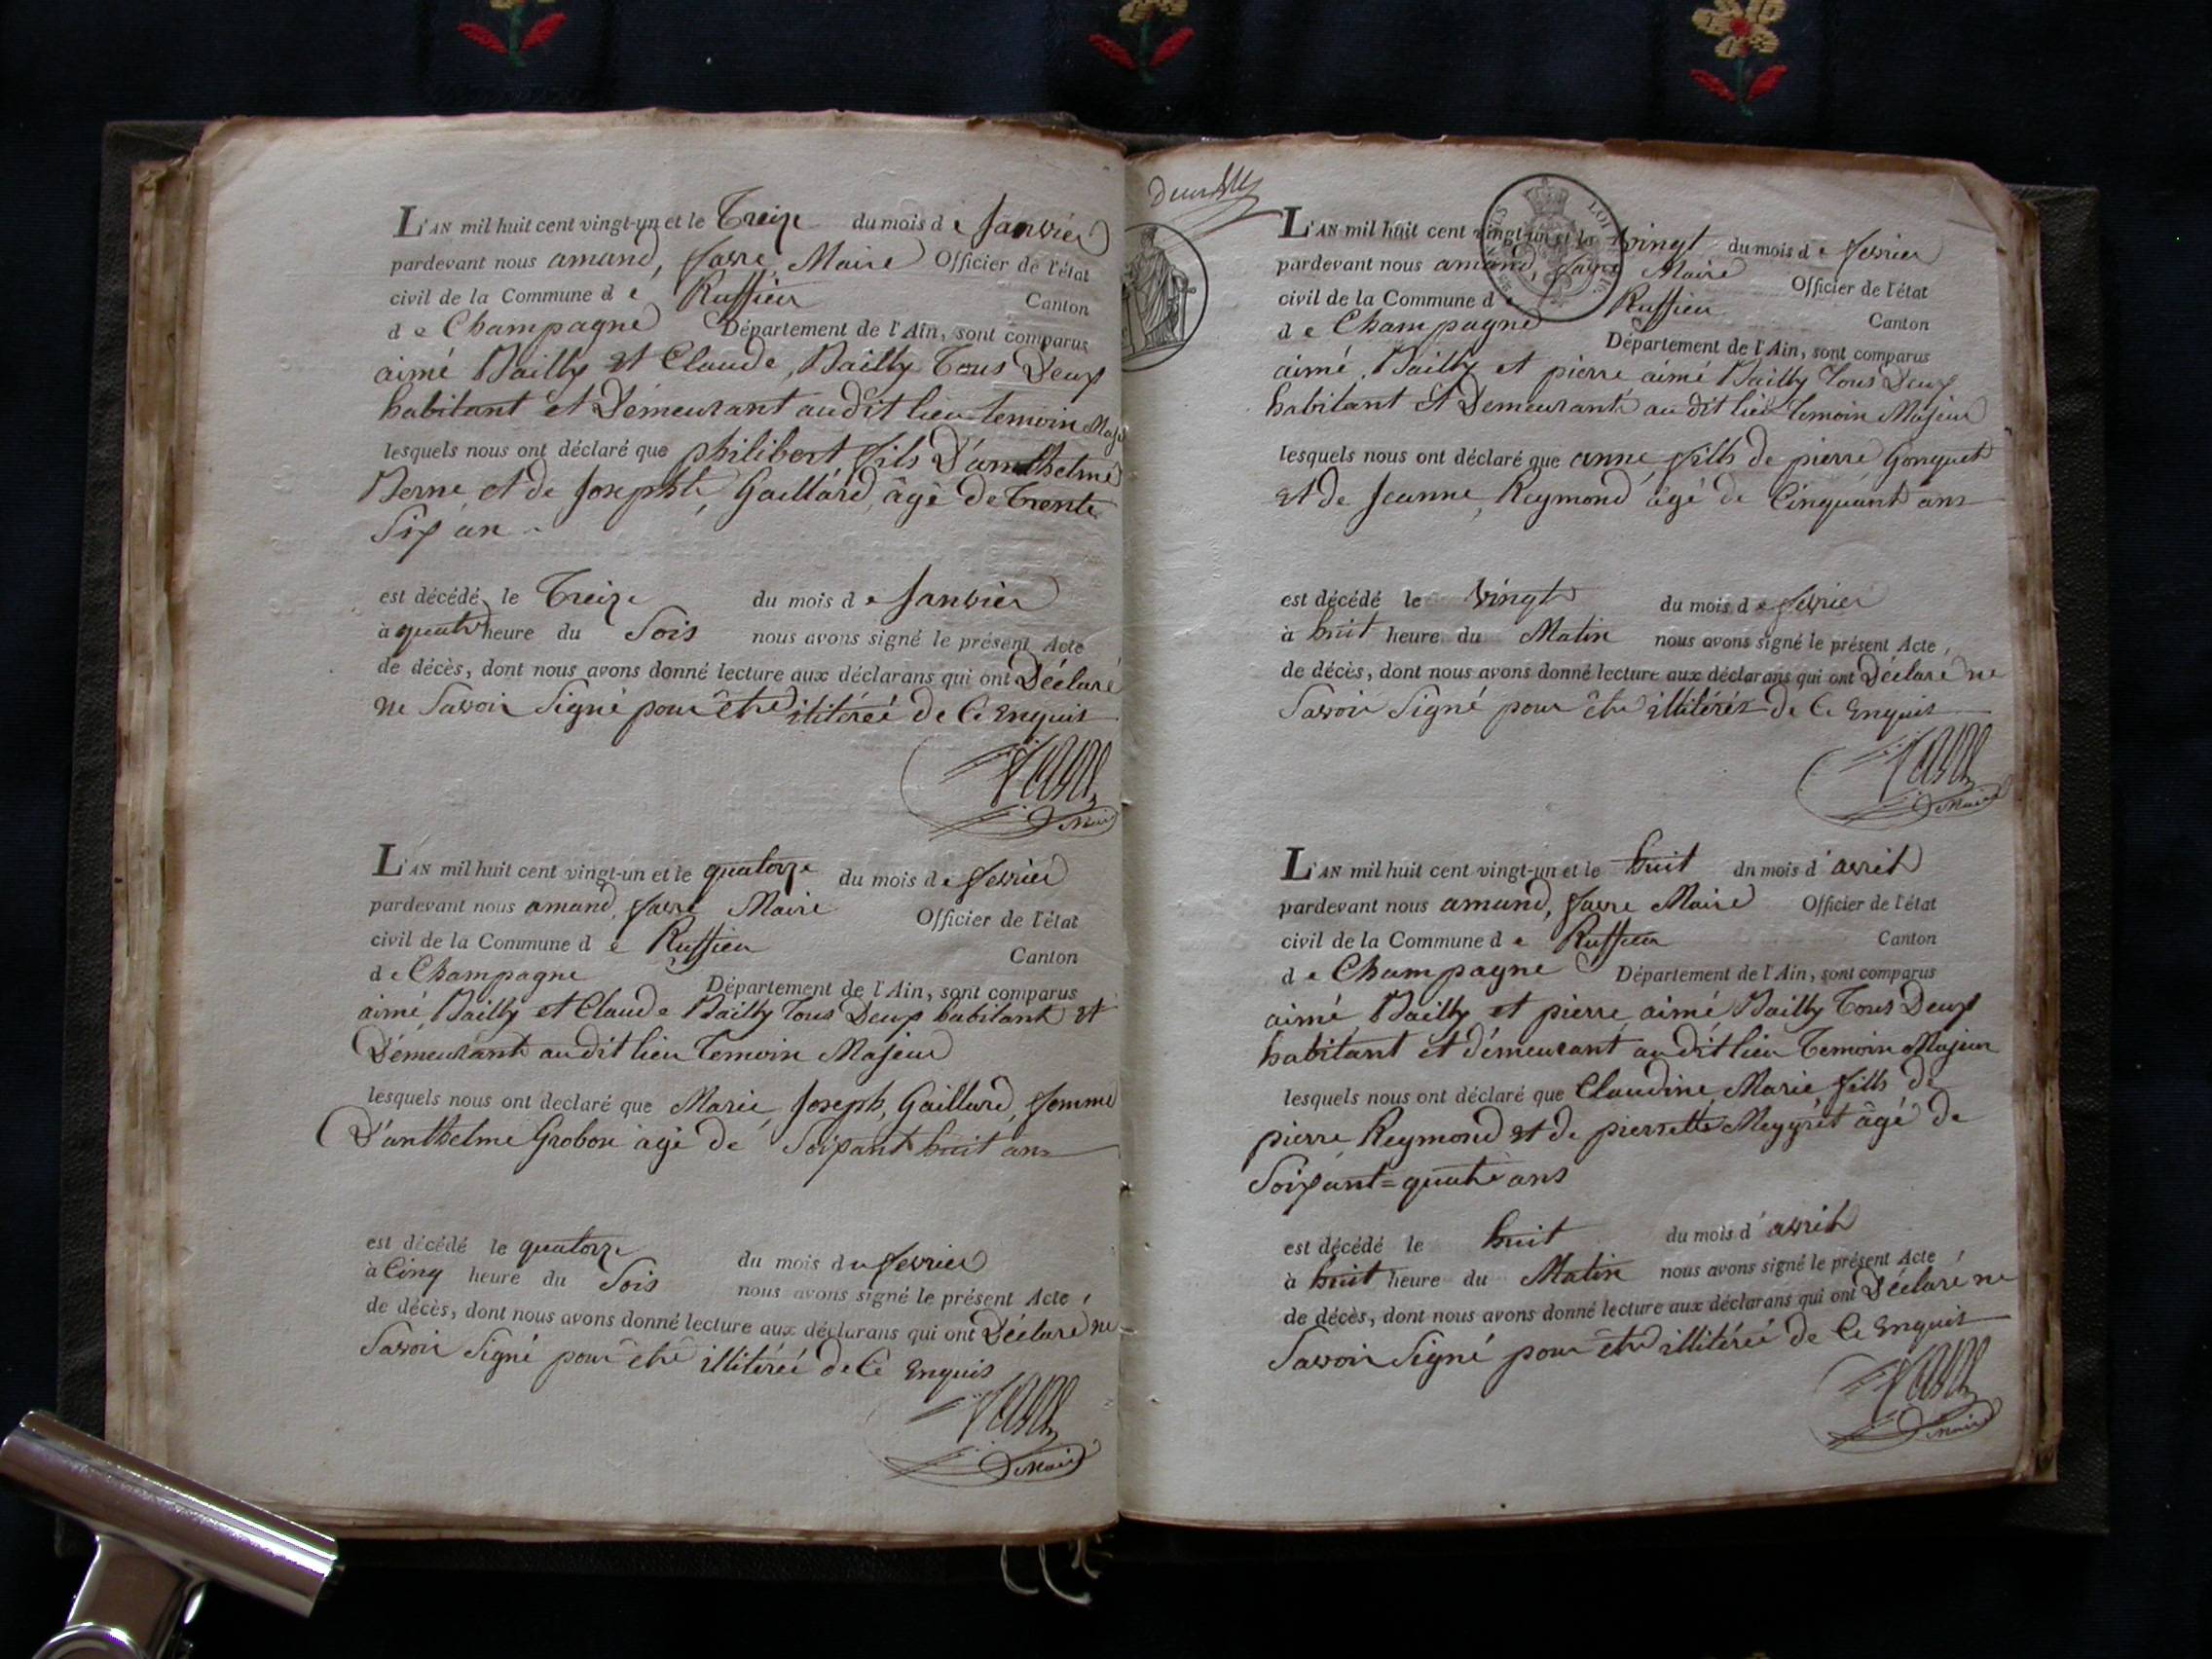 L'AN mil huit cent vingt-un et le Treize du mois de Janvier
pardevant nous amand, favre Maire Officier de l'état
civil de la Commune de Ruffieu Canton
de Champagne Département de l'Ain, sont comparus
aimé Bailly et Claude, Bailly Tous Deux
habitant et Démeurant audit lieu temoin Maj
lesquels nous ont déclaré que philibert fils D'anthelme
Berne et de Josephte, Gaillard, âgé de Trente
Six an
est décédé le Treize du mois de Janvier
à quatre heure du Soir nous avons signé le présent Acte
de décès, dont nous avons donné lecture aux déclarans qui ont Déclaré
ne Savoir Signé pour être illitéréé de Ce Enquis
Favre
Maire
L'AN mil huit cent vingt-un et le quatorze du mois de fevrier
pardevant nous amand, favre Maire Officier de l'état
civil de la Commune de Ruffieu Canton
de Champagne Département de l'Ain, sont comparus
aimé, Bailly et Claude Bailly Tous Deux habitant et
Démeurant audit lieu Temoin Majeur
lesquels nous ont declaré que Marie Joseph, Gaillard, femme
D'anthelme Grobon âgé de Soixant huit ans
est décédé le quatorze du mois du fevrier
à Cinq heure du Soir nous avons signé le présent Acte,
de décès, dont nous avons donné lecture aux déclarans qui ont Déclaré ne
Savoir Signé pour être illitéréé de Ce Enquis
Favre
Maire
LOI
L'AN mil huit cent vingt-un et le vingt du mois de fevrier
pardevant nous amand, favre Maire Officier de l'état
civil de la Commune de Ruffieu Canton
de Champagne Département de l'Ain, sont comparus
aimé, Bailly et pierre aimé Bailly Tous Deux
habitant et Demeurant au dit lieu Temoin Majeur
lesquels nous ont déclaré que anne fills de pierre Gonguet
et de Jeanne, Reymond âgé de Cinquant ans
est décédé le vingt du mois de fevrier
à huit heure du Matin nous avons signé le présent Acte,
de décès, dont nous avons donné lecture aux déclarans qui ont Déclaré ne
Savoir Signé pour être illitéréz de Ce Enquis
Favre
Maire
L'AN mil huit cent vingt-un et le huit dn mois d'avril
pardevant nous amand, favre Maire Officier de l'état
civil de la Commune de Ruffieu Canton
de Champagne Département de l'Ain, sont comparus
aimé Bailly et pierre aimé Bailly Tous Deux
habitant et démeurant au dit lieu Temoin Majeur
lesquels nous ont déclaré que Claudine Marie, fills de
pierre Reymond et de pierrette Meyyrét âgé de
Soixant=quatre ans
est décédé le huit du mois d'avril
à huit heure du Matin nous avons signé le présent Acte,
de décès, dont nous avons donné lecture aux déclarans qui ont Déclaré ne
Savoir Signé pour être illitéréé de Ce Enquis
Favre
Maire